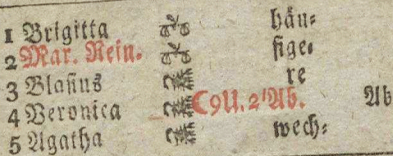 1 Brigitta häu⸗
2 Mar. Rein. fige⸗
3 Blasius re
4 Veronica C9U. 2' Ab. Ab
5 Agatha wech⸗